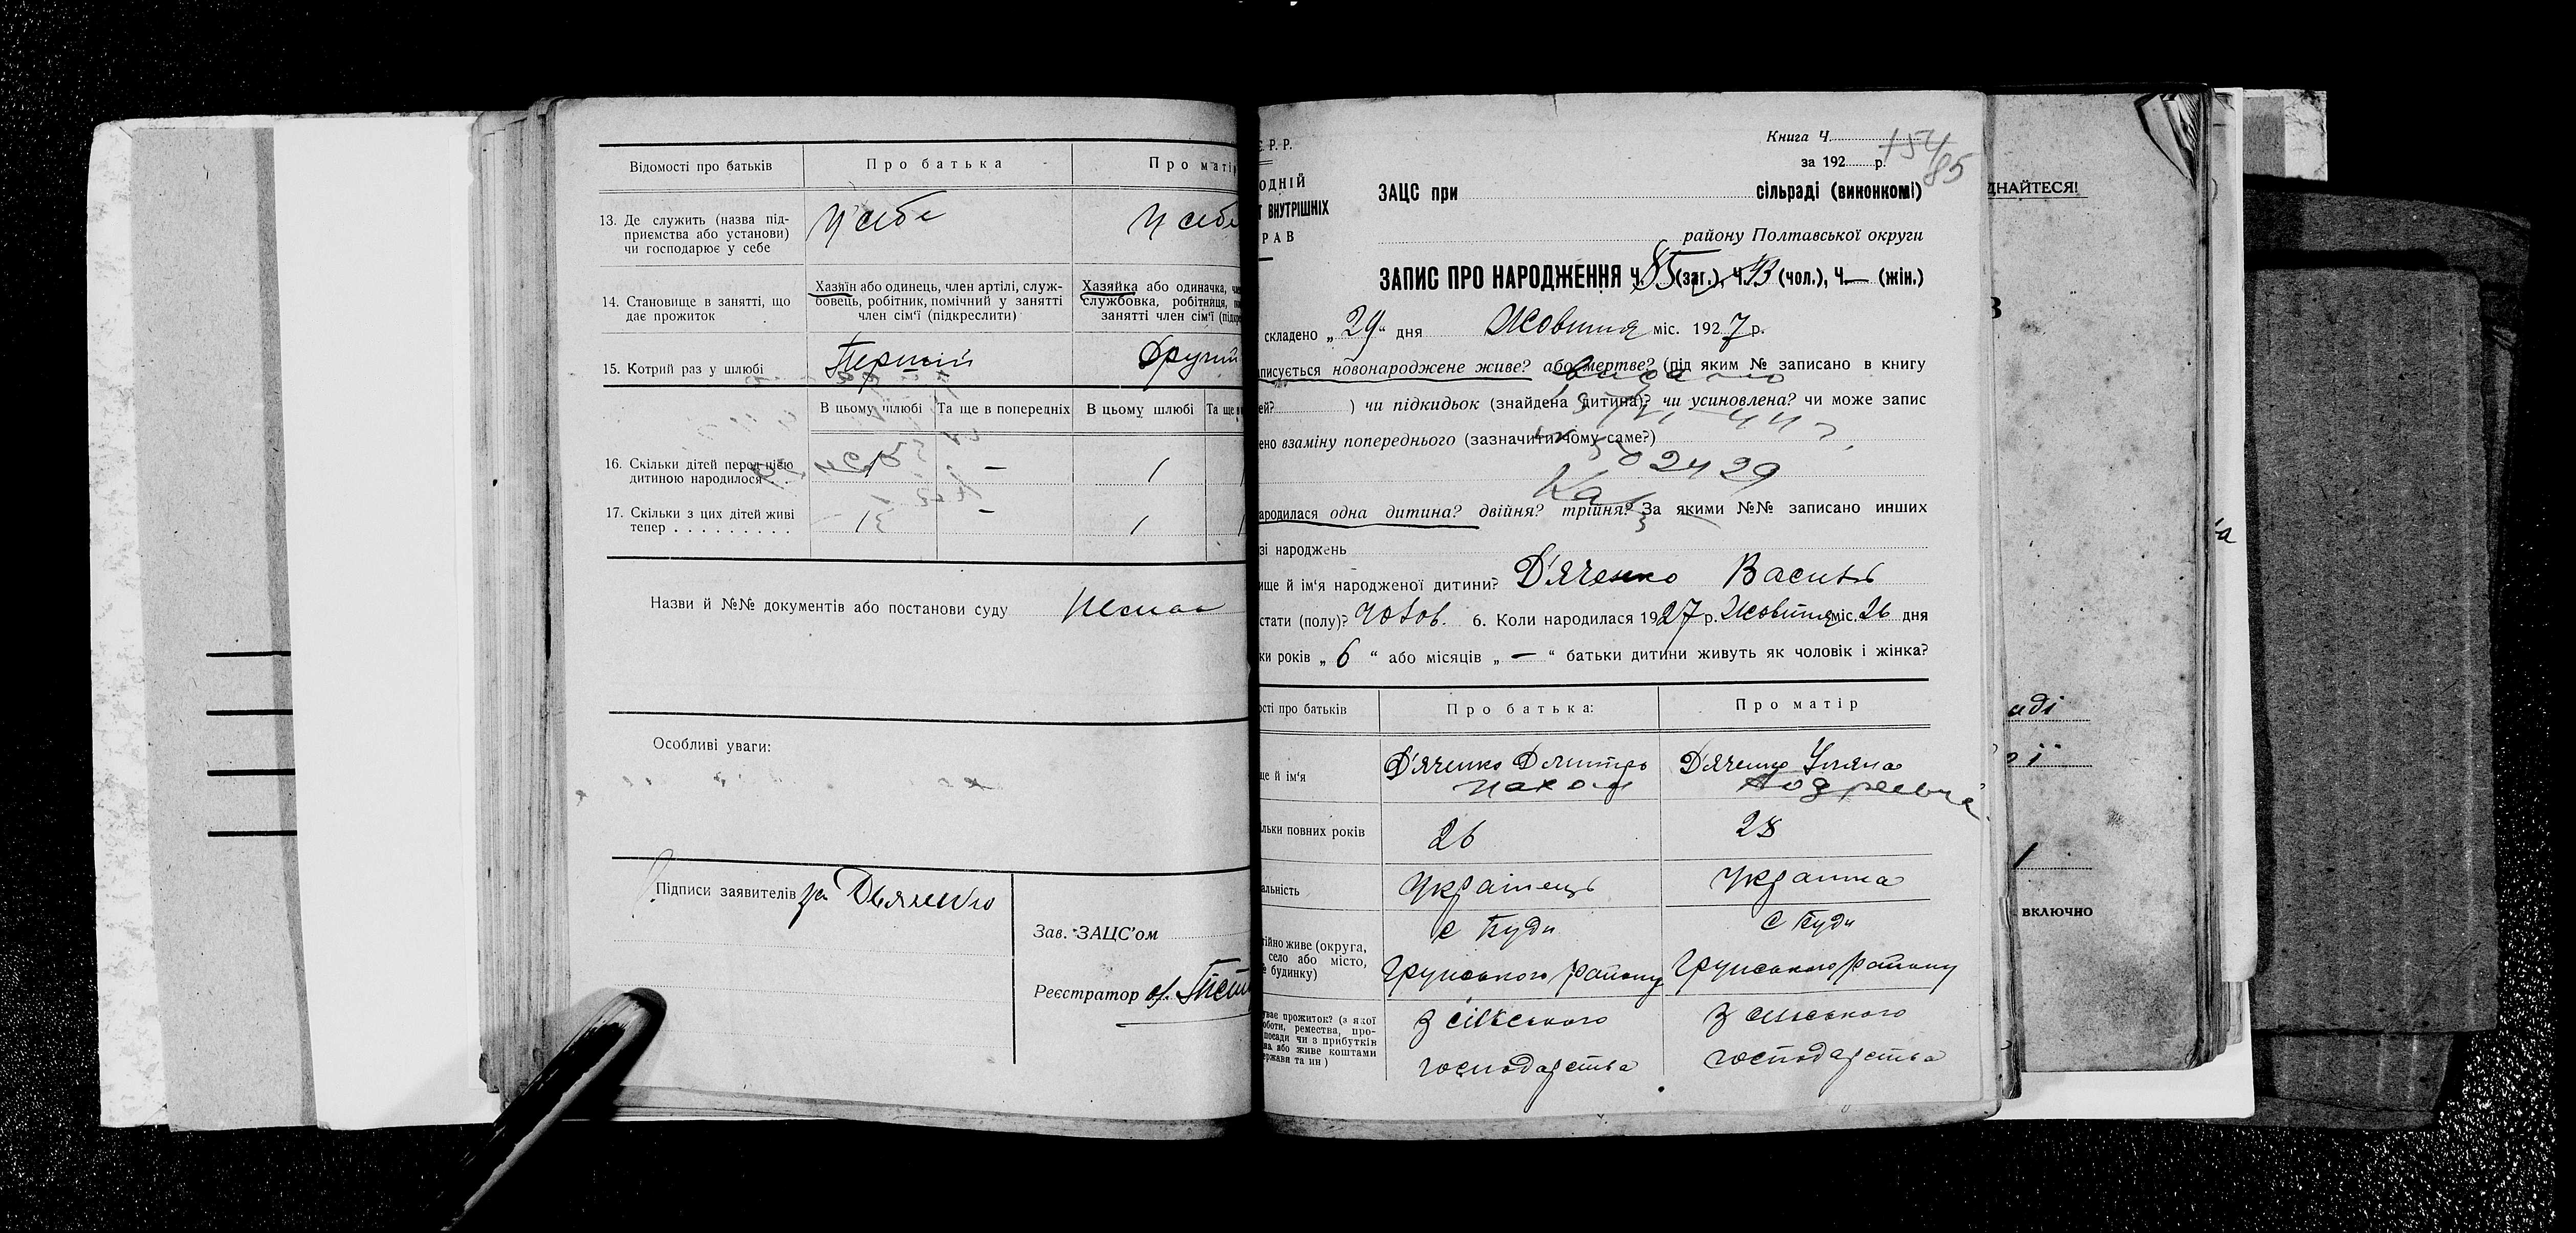 Відомості про батьків
Про батька
Про матір
13. Де служить (назва під-
приємства або установи)
чи господарює у себе
У себе
У себе
14. Становище в занятті, що
дає прожиток
Хазяїн або одинець, член артілі, служ-
бовець, робітник, помічний у занятті
член сім'ї (підкреслити)
Хазяйка або одиначка,
службовка, робітниця,
занятті член сім'ї
15. Котрий раз у шлюбі
Перший
Другий
В цьому шлюбі
Та ще в попередніх
В цьому шлюбі
Та ще
16. Скільки дітей перед цією
дитиною народилося . .
1
—
1
1
17. Скільки з цих дітей живі
тепер . . . . . . . . .
1
-
1
1
Назви й №№ документів або постанови суду
Немає
Особливі уваги:
Підписи заявителів за Дьяченко
Зав. ЗАЦС'ом
Реєстратор
Є. Р. Р.
ВНУТРІШНІХ
РАВ
Книга Ч.
за 192 р.
154
85
ЗАЦС при сільраді (виконкомі)
району Полтавської округи
ЗАПИС ПРО НАРОДЖЕННЯ Ч. 85 (заг.), Ч. 43 (чол.), Ч. — (жін.)
складено „29" дня Жовтня міс. 1927 р.
писується новонароджене живе? або мертве? (під яким № записано в книгу
ей? ) чи підкидьок (знайдена дитина)? чи усиновлена? чи може запис
ено взаміну попереднього (зазначити чому саме?)
02429
ародилася одна дитина? двійня? трійня? За якими №№ записано инших
зі народжень
ище й ім'я народженої дитини? Д'яченко Василь
стати (полу)? Чолов. 6. Коли народилася 1927 р. Жовтня міс. 26 дня
ки років „ 6 " або місяців „ — " батьки дитини живуть як чоловік і жінка?
ості про батьків
Про батька:
Про матір
ще й ім'я
Д'яченко Дмитро
Д'яченко Уляна
Андреевна
льки повних років
26
28
альність
Українець
Українка
тійно живе (округа,
село або місто,
№ будинку)
с Куди
Грунського району
с Куди
Грунського району
уває прожиток? (з якої
оботи, ремества, про-
посади чи з прибутків
ва або живе коштами
ержави та ин)
З сільського
господарства
З сільського
господарства
ДНАЙТЕСЯ!
В
аді
ої
1
включно